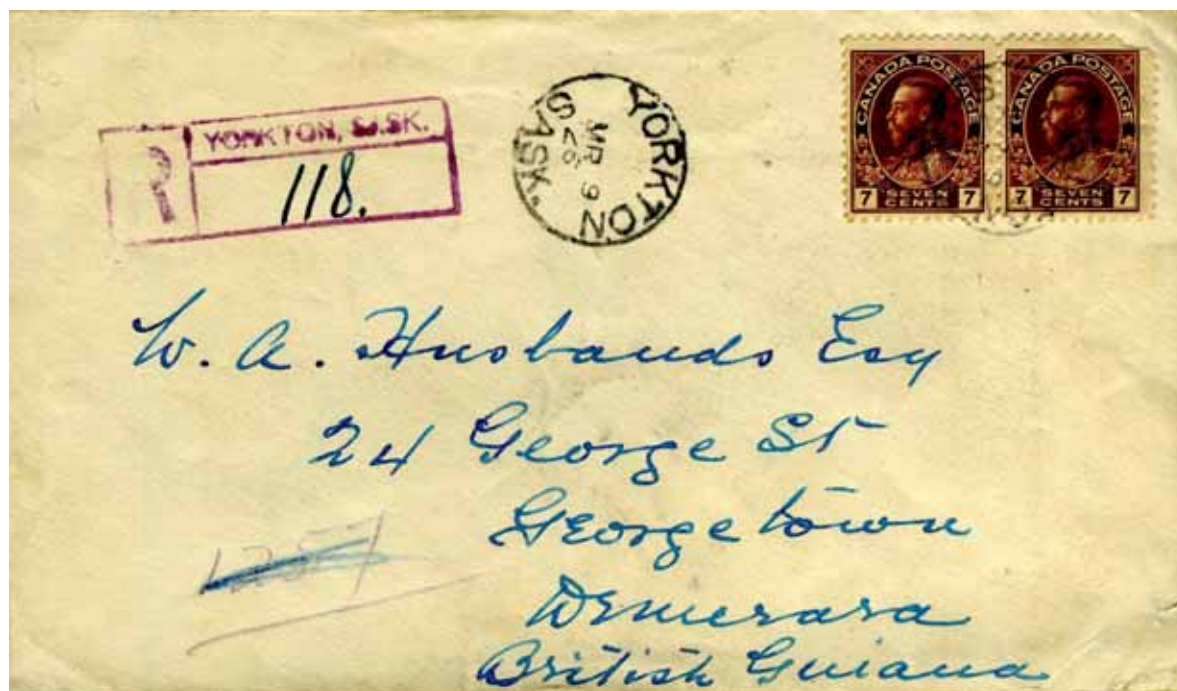 R YORKTON, SASK.
118.
YORKTON
MR 9
26
SASK.
CANADA POSTAGE
7 SEVEN CENTS 7
CANADA POSTAGE
7 SEVEN CENTS 7
W. A. Husbands Esq
24 George St
Georgetown
Demerara
British Guiana